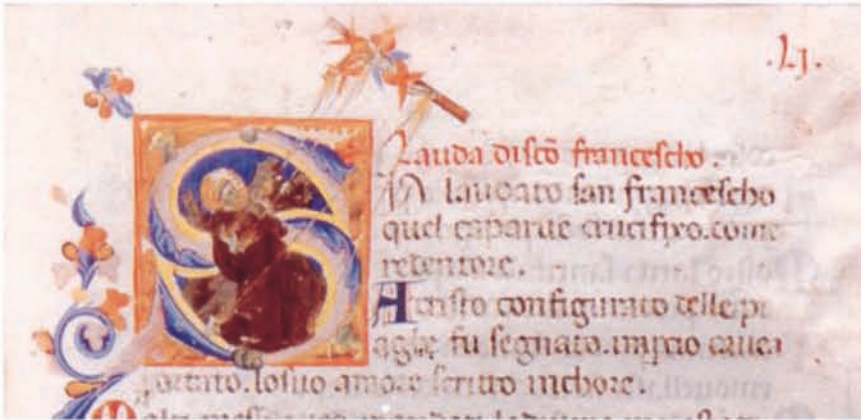 .Lj.
Lauda discõ francescho.
IA laudato san francescho
quel caparue crucifixo.come
redentore.
A cristo configurato delle pi
aghe fu segnato.inpcio cauea
portato.losuo amore scritto inchore.